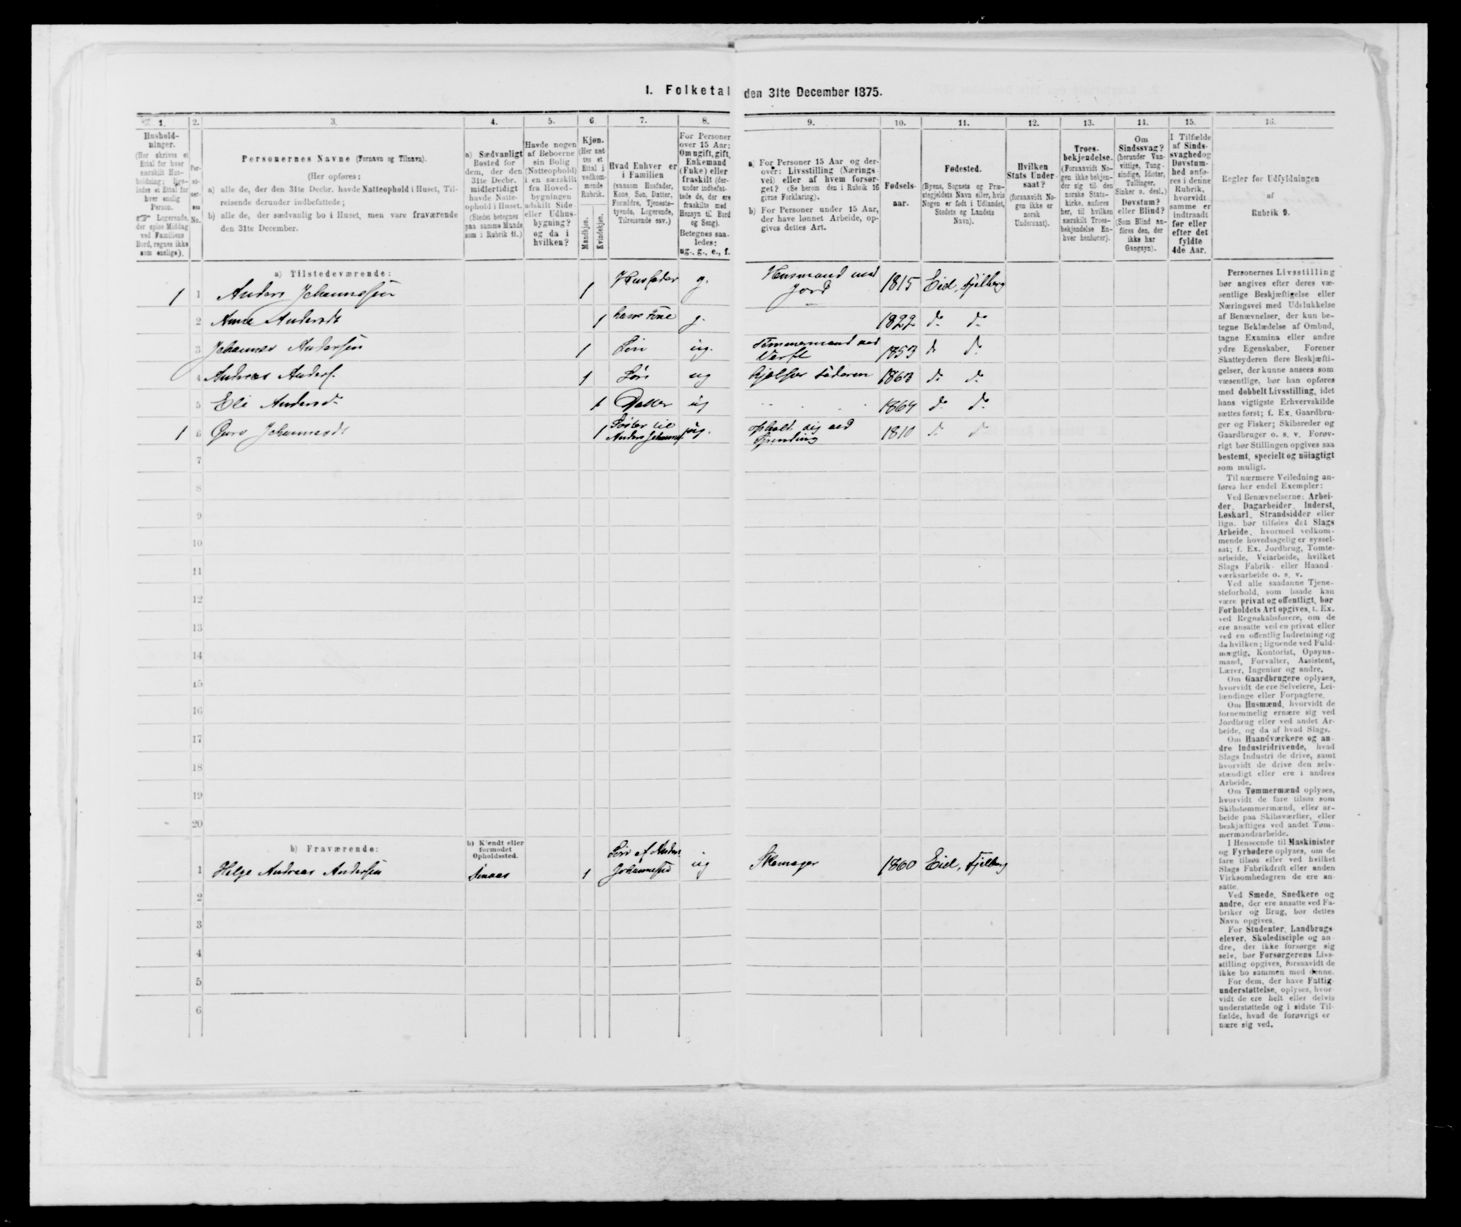 1. Folketal den 31te December 1875.
1. 2. 3. 4. 5. 6. 7. 8. 9. 10. 11. 12. 13. 14. 15. 16.
Hushold-
ninger.
Per-
Personernes Navne (Fornavn og Tilnavn).
(Her opføres:
a) alle de, der den 31te Decbr. havde Natteophold i Huset, Til-
reisende derunder indbefattede;
b) alle de, der sædvanlig bo i Huset, men vare fraværende
den 31te December.
a) Sædvanligt
Bosted for
dem, der den
31te Decbr.
midlertidigt
havde Natte-
ophold i Huset.
(Stedet betegnes
paa samme Maade
som i Rubrik 11.)
Havde nogen
af Beboerne
sin Bolig
(Natteophold)
i en særskilt
fra Hoved-
bygningen
adskilt Side
eller Udhus-
bygning?
og da i
hvilken?
Kjøn.
Mandkjøn.
Kvindekjøn.
Hvad Enhver er
i Familien
(saasom Husfader,
Kone, Søn, Datter,
Forældre, Tjeneste-
tyende, Logerende,
Tilreisende osv.)
For Personer
over 15 Aar:
Om ugift, gift,
Enkemand
(Enke) eller
fraskilt
Betegnes saa-
ledes:
ug., g., e., f.
a) For Personer 15 Aar og der-
over: Livsstilling (Nærings-
vei) eller af hvem forsør-
get? (Se herom den i Rubrik 16
givne Forklaring).
b) For Personer under 15 Aar,
der have lønnet Arbeide, op-
gives dettes Art.
Fødsels-
aar.
Fødested.
(Byens, Sognets og Præ-
stegjeldets Navn eller, hvis
Nogen er født i Udlandet,
Stedets og Landets
Navn).
Hvilken
Stats Under-
saat?
(forsaavidt No-
gen ikke er
norsk
Undersaat).
Troes-
bekjendelse.
(Forsaavidt No-
gen ikke bekjen-
der sig til den
norske Stats-
kirke, anføres
her, til hvilken
særskilt Troes-
bekjendelse En-
hver henhører).
Om
Sindssvag?
(herunder Van-
vittige, Tung-
sindige, Idioter,
Tullinger,
Sinker o. desl.)
Døvstum?
eller Blind?
(Som Blind an-
føres den, der
ikke har
Gangsyn).
I Tilfælde
af Sinds-
svaghed og
Døvstum-
hed anfø-
res i denne
Rubrik,
hvorvidt
samme er
indtraadt
før eller
efter det
fyldte
4de Aar.
Regler for Udfyldningen
af
Rubrik 9.
a) Tilstedeværende:
1 1 Anders Johannessen 1 Husfader g. Husmand med Jord 1815 Eid, Fjelberg
2 Anna Andersdt 1 hans Kone g. 1822 do do
3 Johannes Andersen 1 Søn ug. Tømmermand ved Verft 1853 do do
4 Andreas Anders. 1 Søn ug Hjelper Faderen 1863 do do
5 Eli Andersdr 1 Datter ug 1864 do do
1 6 Guro Johannesdt 1 Søster til Anders Johannes. ug. opholdt sig ved Spinding 1810 do do
7
8
9
10
11
12
13
14
15
16
17
18
19
20
b) Fraværende:
b) Kjendt eller
formodet
Opholdssted.
1 Helge Andreas Andersen 1 Søn af Anders Johannesen ug Skomager 1860 Eid, Fjelberg
2
3
4
5
6
Personernes Livsstilling
bør angives efter deres væ-
sentlige Beskjæftigelse eller
Næringsvei med Udelukkelse
af Benævnelser, der kun be-
tegne Beklædelse af Ombud,
tagne Examina eller andre
ydre Egenskaber. Forener
Skatteyderen flere Beskjæfti-
gelser, der kunne ansees som
væsentlige, bør han opføres
med dobbelt Livsstilling, idet
hans vigtigste Erhvervskilde
sættes først; f. Ex. Gaardbru-
ger og Fisker; Skibsreder og
Gaardbruger o. s. v. Forøv-
rigt bør Stillingen opgives saa
bestemt, specielt og nöiagtigt
som muligt.
Til nærmere Veiledning an-
føres her endel Exempler:
Ved Benævnelserne: Arbei-
der, Dagarbeider, Inderst,
Løskarl, Strandsidder eller
lign. bør tilføies det Slags
Arbeide, hvormed vedkom-
mende hovedsagelig er syssel-
sat; f. Ex. Jordbrug, Tomte-
arbeide, Veiarbeide, hvilket
Slags Fabrik- eller Haand-
værksarbeide o. s. v.
Ved alle saadanne Tjene-
steforhold, som baade kan
være privat og offentligt, bør
Forholdets Art opgives, f. Ex.
ved Regnskabsførere, om de
ere ansatte ved en privat eller
ved en offentlig Indretning og
da hvilken; lignende ved Fuld-
mægtig, Kontorist, Opsyns-
mand, Forvalter, Assistent,
Lærer, Ingeniør og andre.
Om Gaardbrugere oplyses,
hvorvidt de ere Selveiere, Lei-
lændinge eller Forpagtere.
Om Husmænd, hvorvidt de
fornemmelig ernære sig ved
Jordbrug eller ved andet Ar-
beide, og da af hvad Slags.
Om Haandværkere og an-
dre Industridrivende, hvad
Slags Industri de drive, samt
hvorvidt de drive den selv-
stændigt eller ere i andres
Arbeide.
Om Tømmermænd oplyses,
hvorvidt de fare tilsøs som
Skibstømmermænd, eller ar-
beide paa Skibsværfter, eller
beskjæftiges ved andet Tøm-
mermandsarbeide.
I Henseende til Maskinister
og Fyrbødere oplyses, om de
fare tilsøs eller ved hvilket
Slags Fabrikdrift eller anden
Virksomhedsgren de ere an-
satte.
Ved Smede, Snedkere og
andre, der ere ansatte ved Fa-
briker og Brug, bør dettes
Navn opgives.
For Studenter, Landbrugs-
elever, Skoledisciple og an-
dre, der ikke forsørge sig
selv, bør Forsørgerens Livs-
stilling opgives, forsaavidt de
ikke bo sammen med denne.
For dem, der have Fattig-
understøttelse, oplyses, hvor-
vidt de ere helt eller delvis
understøttede og i sidste Til-
fælde, hvad de forøvrigt er-
nære sig ved.